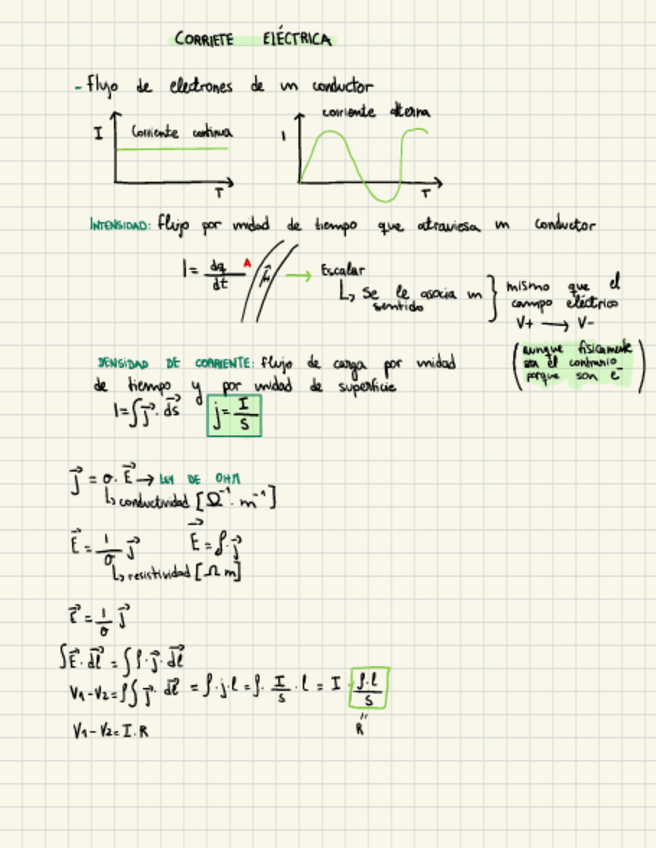 CORRIETE ELÉCTRICA
- flujo de electrones de un conductor
I Corriente continua T
corriente alterna
I T
INTENSIDAD: flujo por unidad de tiempo que atraviesa un conductor
I = dq/dt A
Escalar
↳ se le asocia un sentido } mismo que el campo eléctrico
V+ → V-
(aunque físicamente
sea el contrario
porque son e⁻)
DENSIDAD DE CORRIENTE: flujo de carga por unidad
de tiempo y por unidad de superficie
I = ∫ j⃗ · ds⃗ j = I/S
j⃗ = σ · E⃗ → LEY DE OHM
↳ conductividad [Ω⁻¹ · m⁻¹]
E⃗ = 1/σ j⃗ E⃗ = ρ · j⃗
↳ resistividad [Ω m]
E⃗ = 1/σ j⃗
∫E⃗ · dl⃗ = ∫ρ · j⃗ · dl⃗
V₁ - V₂ = ρ∫j⃗ · dl⃗ = ρ · j · l = ρ · I/S · l = I ρ · l/S
V₁ - V₂ = I · R
" R